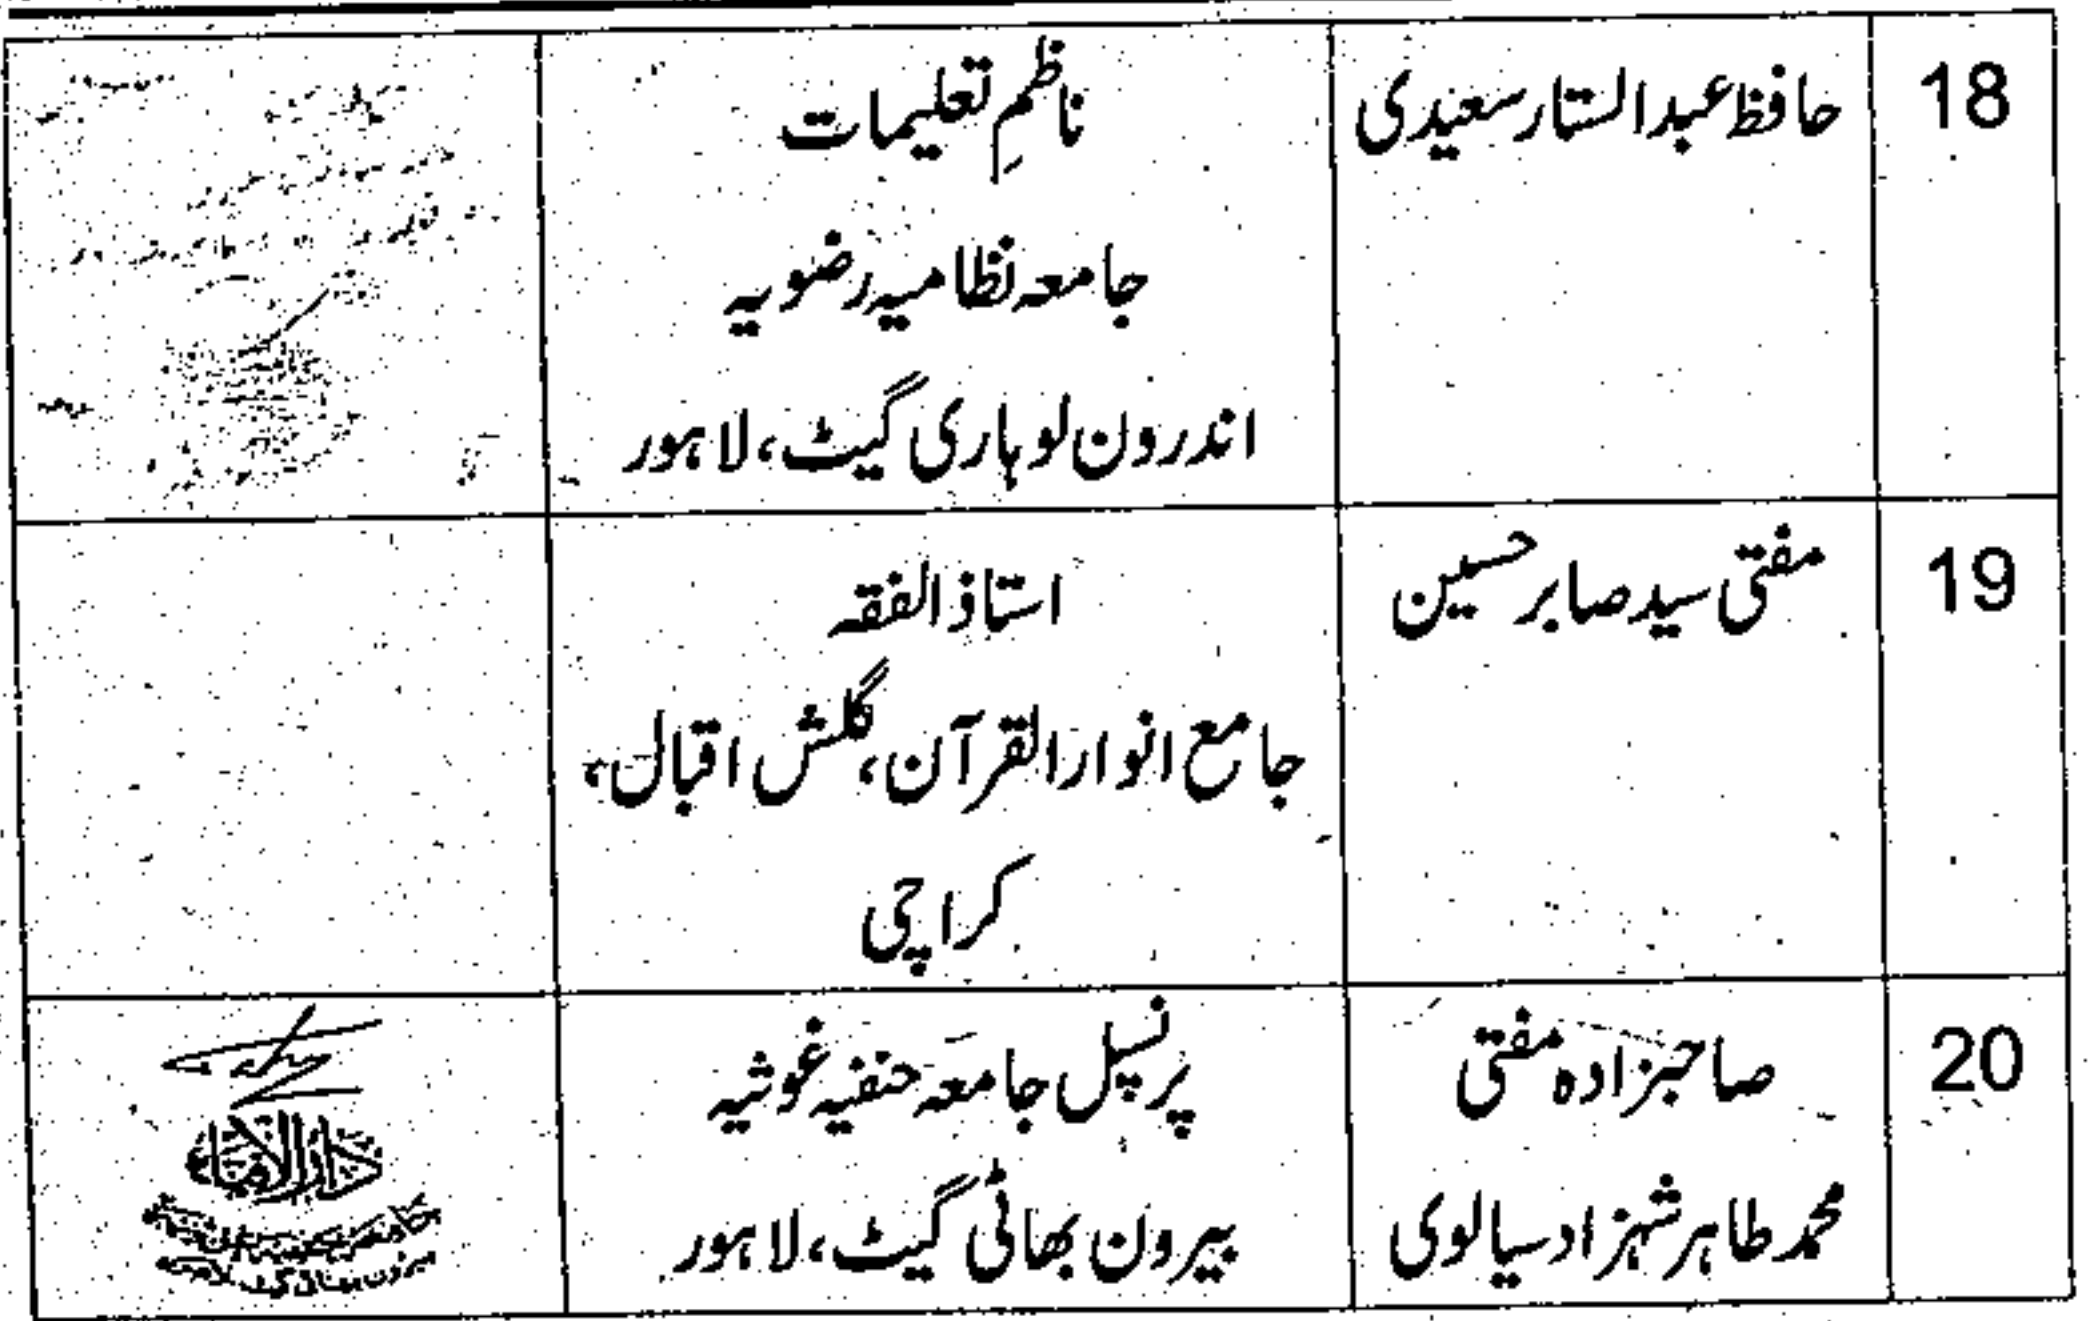 18
حافظ عبدالستار سعیدی
ناظمِ تعلیمات
جامعہ نظامیہ رضویہ
اندرون لوہاری گیٹ، لاہور
19
مفتی سید صابر حسین
استاذ الفقہ
جامع انوار القرآن، گلشن اقبال،
کراچی
20
صاحبزادہ مفتی
محمد طاہر شہزاد سیالوی
پرنسپل جامعہ حنفیہ غوثیہ
بیرون بھاٹی گیٹ، لاہور
دارالافتاء